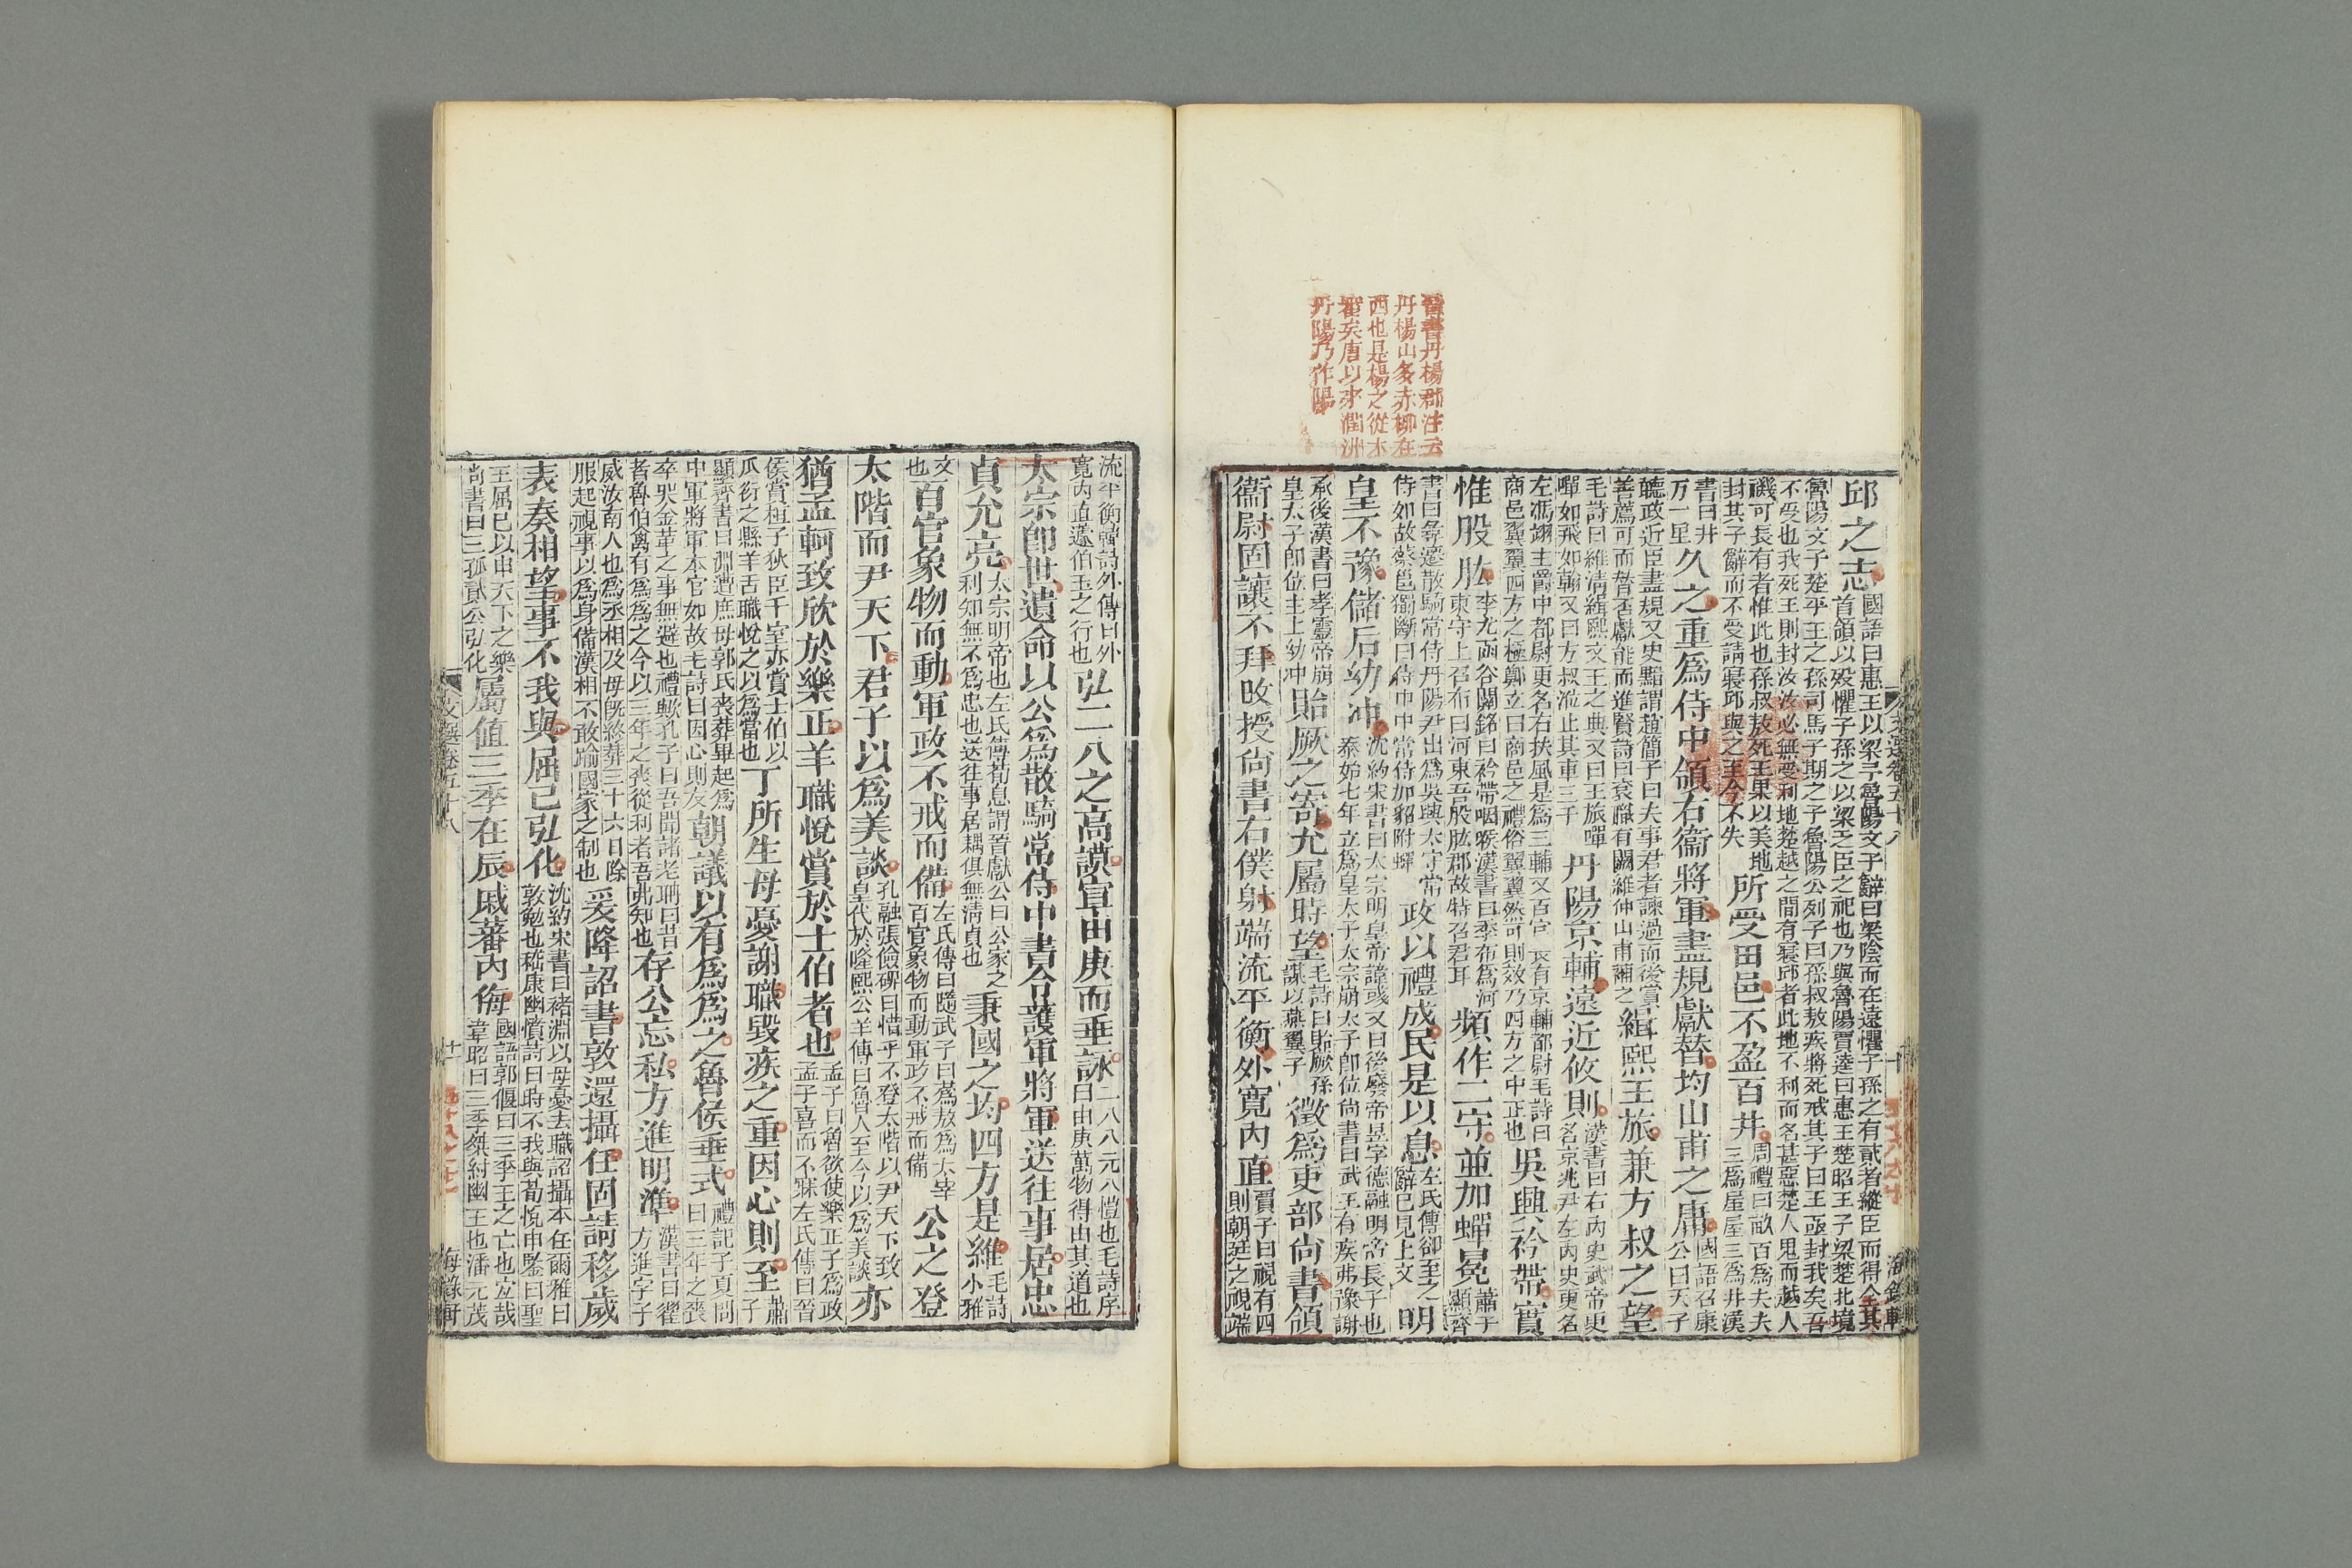 晉書丹楊郡注云
丹楊山多赤柳在
西也是楊之從木
審矣唐以來潤州
丹陽乃作陽
邱之志國語曰惠王以梁予魯陽文子辭曰梁險而在遠懼子孫之有貳者縱臣而得全其
首領以歿懼子孫之以梁乏臣之祀也乃與魯陽賈逵曰惠王楚昭王子梁楚北境
魯陽文子楚平王之孫司馬子期之子魯陽公列子曰孫叔敖疾將死戒其子曰王亟封我矣吾
不受也我死王則封汝汝必無受利地楚越之間有寢邱者此地不利而名甚惡楚人鬼而越人
禨可長有者惟此也孫叔敖死王果以美地
封其子辭而不受請寢邱與之至今不失
所受田邑不盈百井周禮曰畝百為夫夫
三為屋屋三為井漢
書曰井
方一里
久之重為侍中領右衞將軍盡規獻替均山甫之庸國語召康
公曰天子
聽政近臣盡規又史黯謂趙簡子曰夫事君者諫過而後賞
善薦可而替否獻能而進賢詩曰袞職有闕維仲山甫補之
緝熙王旅兼方叔之望
毛詩曰維清緝熙文王之典又曰王旅嘽
嘽如飛如翰又曰方叔涖止其車三千
丹陽京輔遠近攸則漢書曰右內史武帝更
名京兆尹左內史更名
左馮翊主爵中都尉更名右扶風是為三輔又百官表有京輔都尉毛詩曰
商邑翼翼四方之極鄭玄曰商邑之禮俗翼翼然可則效乃四方之中正也
吳興衿帶實
惟股肱李尤函谷關銘曰衿帶咽喉漢書曰季布為河
東守上召布曰河東吾股肱郡故特召君耳
頻作二守並加蟬冕蕭子
顯齊
書曰彛遷散騎常侍丹陽尹出為吳興太守常
侍如故蔡邕獨斷曰侍中中常侍加貂附蟬
政以禮成民是以息左氏傳卻至之
辭已見上文
明
皇不豫儲后幼沖沈約宋書曰太宗明皇帝諱彧又曰後廢帝昱字德融明帝長子也
泰始七年立為皇太子太宗崩太子卽位尙書曰武王有疾弗豫謝
承後漢書曰孝靈帝崩
皇太子卽位主上幼沖
貽厥之寄允屬時望毛詩曰貽厥孫
謀以燕翼子
徵為吏部尙書領
衞尉固讓不拜攺授尙書右僕射端流平衡外寬內直賈子曰視有四
則朝廷之視端
流平衡韓詩外傳曰外
寬內直蘧伯玉之行也
弘二八之高謨宣由庚而垂詠二八八元八愷也毛詩序
曰由庚萬物得由其道也
太宗卽世遺命以公為散騎常侍中書令護軍將軍送往事居忠
貞允亮太宗明帝也左氏傳荀息謂晉獻公曰公家之
利知無不為忠也送往事居耦俱無猜貞也
秉國之均四方是維毛詩
小雅
文
也
百官象物而動軍政不戒而備左氏傳曰隨武子曰蔿敖為太宰
百官象物而動軍政不戒而備
公之登
太階而尹天下君子以為美談孔融張儉碑曰惜乎不登太階以尹天下致
皇代於隆熙公羊傳曰魯人至今以為美談
亦
猶孟軻致欣於樂正羊職悅賞於士伯者也孟子曰魯欲使樂正子為政
孟子喜而不寐左氏傳曰晉
侯賞桓子狄臣千室亦賞士伯以
瓜衍之縣羊舌職悅之以為當也
丁所生母憂謝職毀疾之重因心則至蕭
子
顯齊書曰淵遭庶母郭氏喪葬畢起為
中軍將軍本官如故毛詩曰因心則友
朝議以有為為之魯侯垂式禮記子夏問
曰三年之喪
卒哭金革之事無避也禮歟孔子曰吾聞諸老聃曰昔
者魯伯禽有為為之今以三年之喪從利者吾弗知也
存公忘私方進明準漢書曰翟
方進字子
威汝南人也為丞相及母旣終葬三十六日除
服起視事以為身備漢相不敢踰國家之制也
爰降詔書敦還攝任固請移歲
表奏相望事不我與屈已弘化沈約宋書曰禇淵以母憂去職詔攝本任爾雅曰
敦勉也嵇康幽憤詩曰時不我與荀悅申鑒曰聖
王屈已以申天下之樂
尙書曰三孤貳公弘化
屬值三季在辰戚蕃內侮國語郭偃曰三季王之亡也宜哉
韋昭曰三季桀紂幽王也潘元茂
文選卷五十八
十一
海錄軒